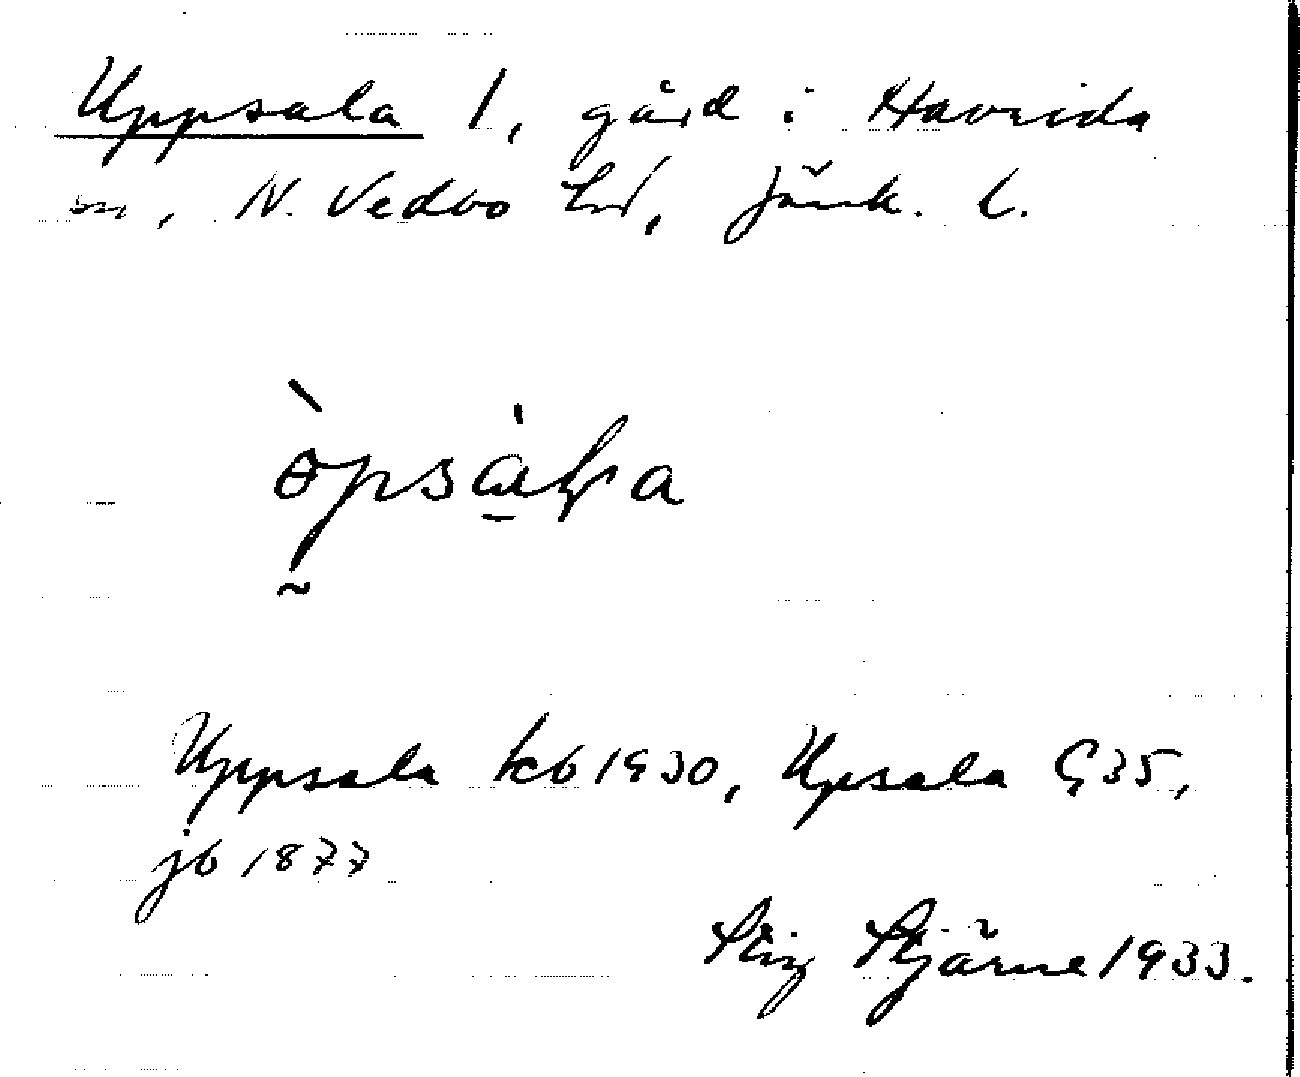 Uppsala 1, gård i Haurida
sn, N. Vedbo hd, Jönk. l.
òpsàl̥a
Uppsala kb 1930, Upsala G 35,
jb 1877
Stig Stjärne 1933.